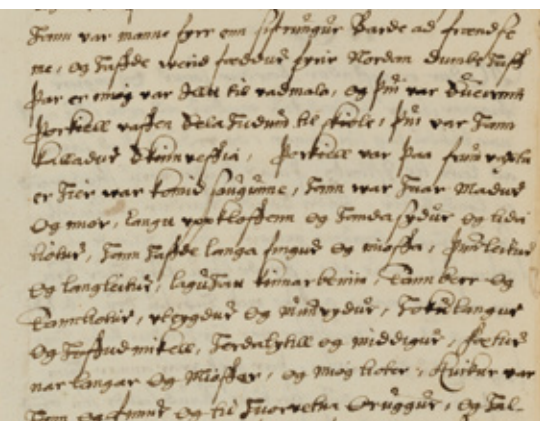 Hann var manne fyrr enn sistrungur Barde ad frændse
me, og haffde verid fæddur fyrir Nordan dumbs haff
Þar er miog var illt til vadmala, og því var sveirnen
Þorkiell vaffen Sela hudum til skiols, því var hann
kalladur Skinnveffia, Þorkiell var þaa frumvaxta
er hier var komid saugunne, hann var haar Madur
og mior, langt uppkloffenn og handasydur og lida
liotur, hann haffde langa fingur og mioffa, þunnleitur
og langleitur, lagu hatt kinnarbeinin, tannberr og
tannliotur, uteygdur og munvydur, hals langur
og hoffud mikell, herdalytill og middigur, fætur
nar langar og Mioffar, og miog liotar, kuikur var
hann og fimur og til huorvetna Oruggur, og hal-